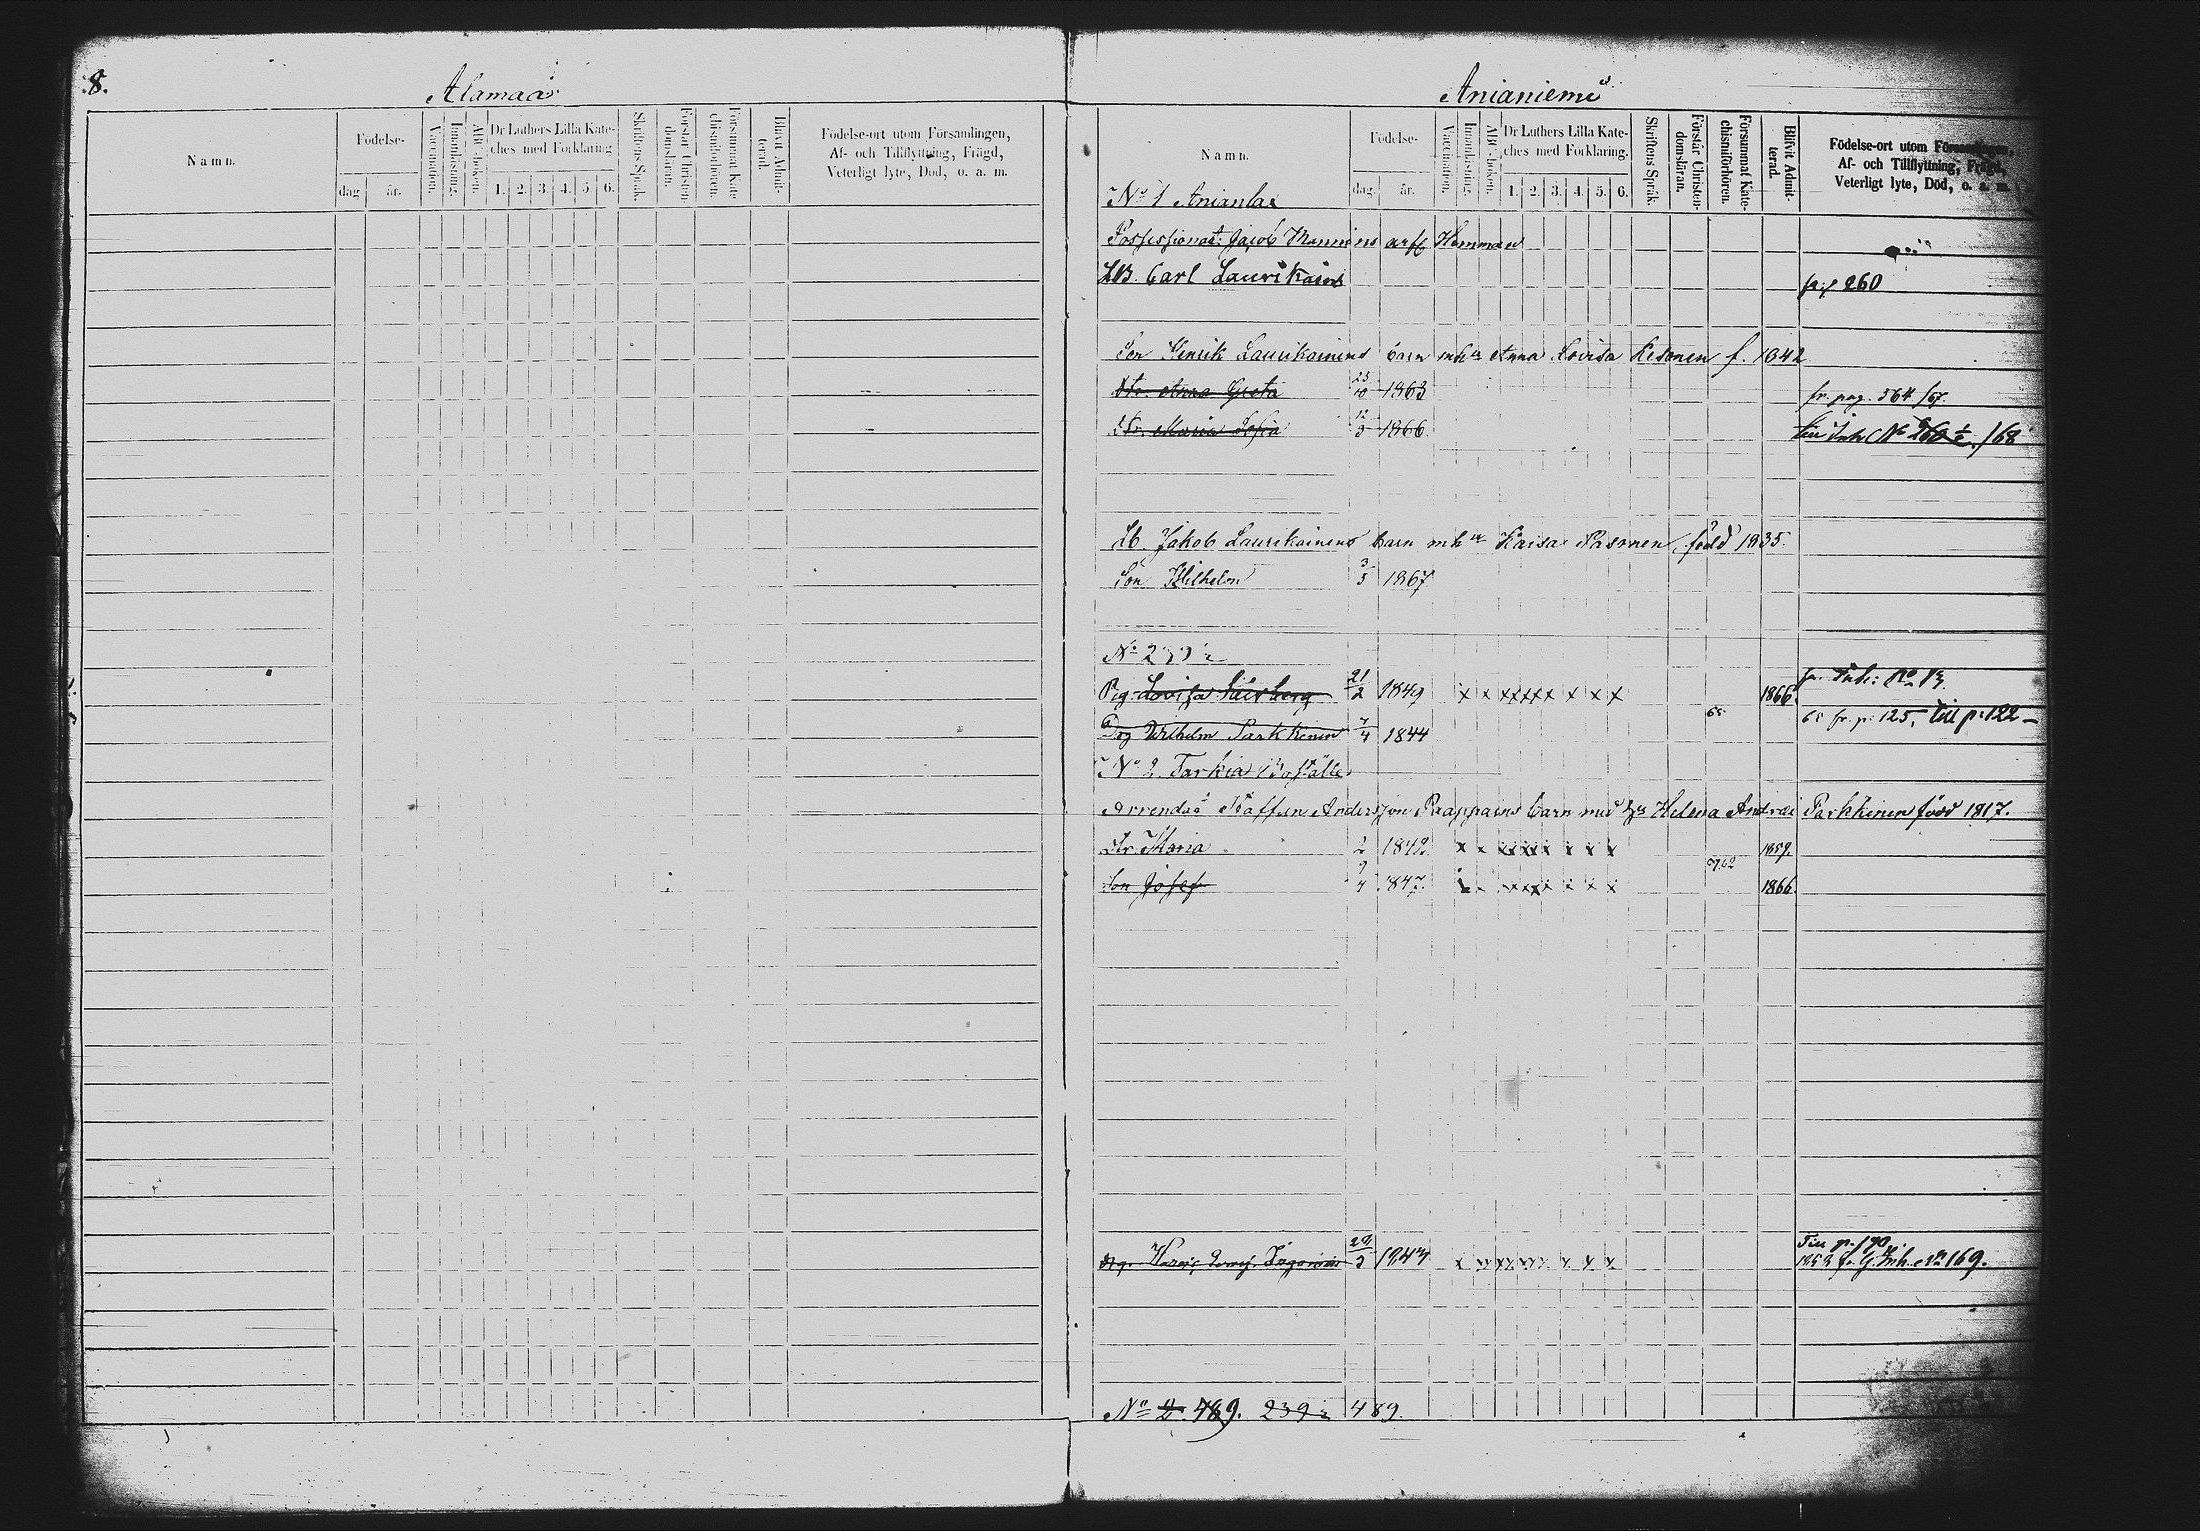 8.
Alamaa
Namn.
Födelse-
dag
år.
Vaccination.
Innanläsning.
ABC-boken.
Dr Luthers Lilla Kate-
ches med Förklaring
1. 2. 3. 4. 5. 6.
Skriftens Språk.
Förstår Christen-
domsläran.
Försummat Kate-
chismiförhören.
Blifvit Admit-
terad.
Födelse-ort utom Församlingen,
Af- och Tillflyttning, Frägd,
Veterligt lyte, Död, o. a. m.
Anianiemi
Namn.
Födelse-
dag.
år.
Vaccination.
Innanläsning.
ABC-boken.
Dr Luthers Lilla Kate-
ches med Förklaring.
1. 2. 3. 4. 5. 6.
Skriftens Språk.
Förstår Christen-
domsläran.
Försummat Kate-
chismiförhören.
Blifvit Admit-
terad.
Födelse-ort utom Församlingen,
Af- och Tillflyttning, Frägd,
Veterligt lyte, Död, o. a. m.
No 1 Anianlax
Jacob Manninens
Carl Laurikain 260
Son Henrik Laurikainens barn mhu Anna Lovisa Kesonen f. 1842
Dtr. Anna Greta 23/10 1863 fr. pag. 564 /67.
Dtr. Maria Sofia 12/3 1866 /68
Lb. Jakob Laurikainens barn mhu Kaisa Pasonen född 1835.
Son Wilhelm 3/3 1867
No 239 1/2
Pig. Lovisa 21/2 1849 x x x x x x x x x x 1866.
Drg Wilhelm Parkkinen 7/4 1844 65 65 fr. p: 125, till p: 122 –
No 2 Tarkia Boställe
Arrendat: Staffan Andersson Raappanens barn med hu Helena Andrae Parkkinen född 1817.
Dtr Maria 2 1842 x x x x x x x x x x 1859.
Son Josef 9/4 1847. x x x x x x x x 1866
1843 x x x x x x x x x Till p. 190.
fr. G. Inh. No 169.
No 2. 489. 239 1/2 489.